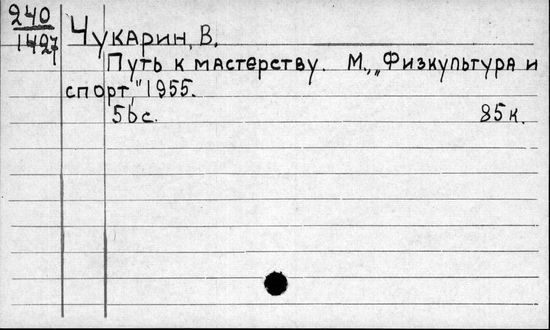 240
1427
Чукарин, В.
Путь к мастерству. М., „Физкультура и
спорт," 1955.
56 с. 85 к.